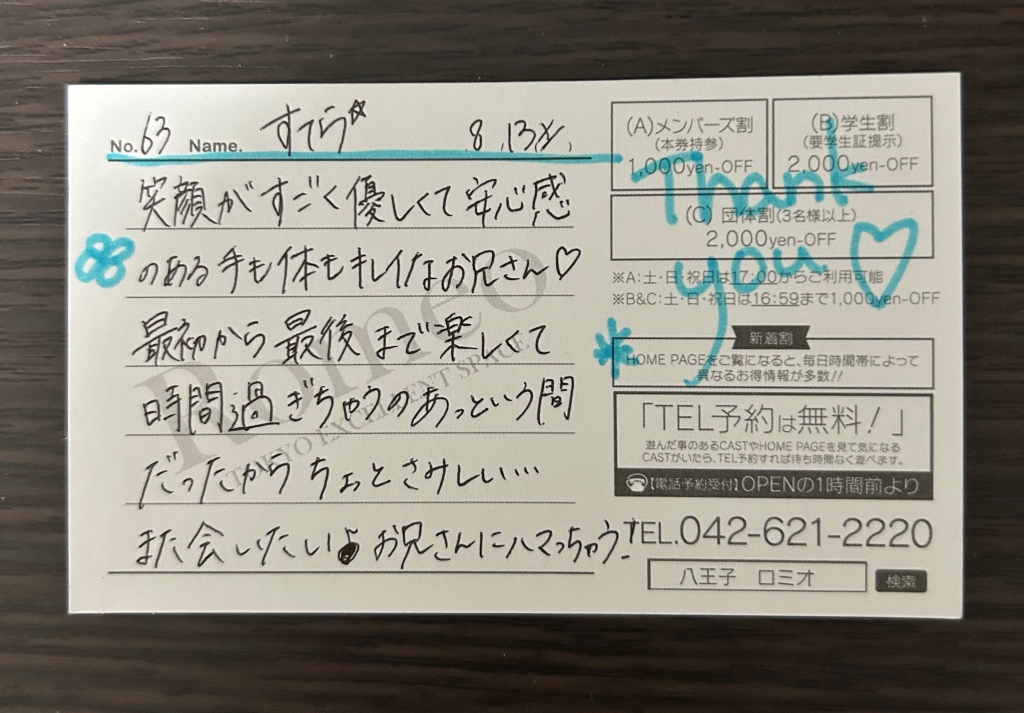 No. 63 Name. すてら☆ 8.13水.
笑顔がすごく優しくて安心感
のある手も体もキレイなお兄さん♡
最初から最後まで楽しくて
時間過ぎちゃうのあっという間
だったからちょっとさみしい…
また会いたい お兄さんにハマっちゃう！
Romeo
TOKYO EXCELLENT SPACE
(A)メンバーズ割
(本券持参)
1,000yen-OFF
(B)学生割
(要学生証提示)
2,000yen-OFF
(C) 団体割(3名様以上)
2,000yen-OFF
Thank
you ♡
※A:土・日・祝日は17:00からご利用可能
※B&C:土・日・祝日は16:59まで1,000yen-OFF
新着割
HOME PAGEをご覧になると、毎日時間帯によって
異なるお得情報が多数!!
「TEL予約は無料！」
遊んだ事のあるCASTやHOME PAGEを見て気になる
CASTがいたら、TEL予約すれば待ち時間なく遊べます。
【電話予約受付】OPENの1時間前より
TEL.042-621-2220
八王子 ロミオ 検索